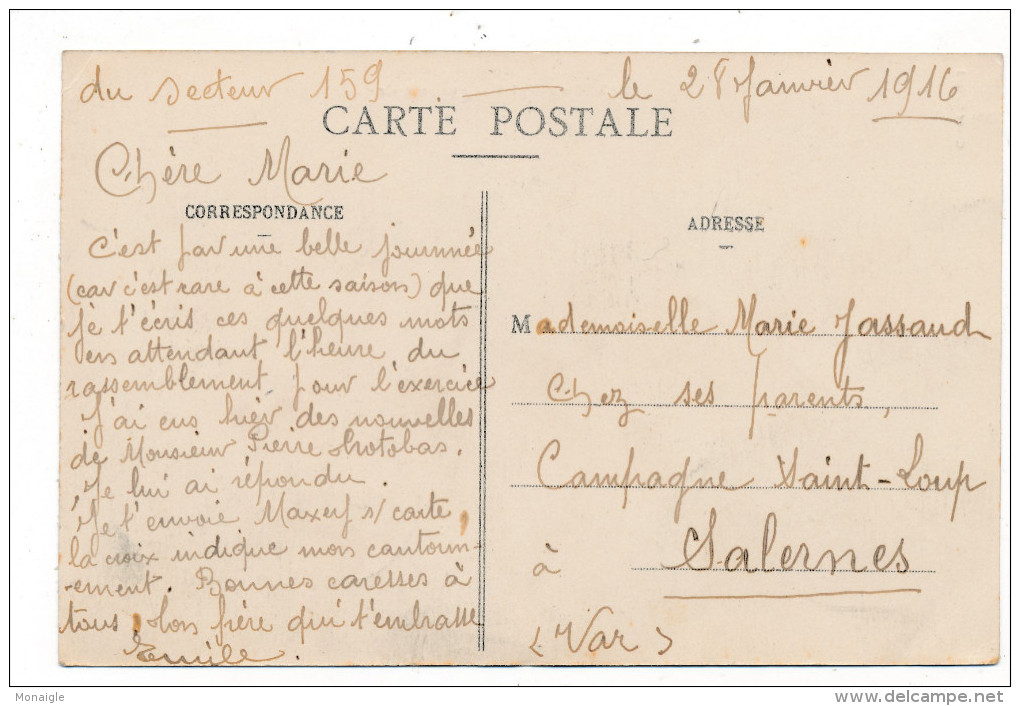 du secteur 159 — le 28 Janvier 1916
CARTE POSTALE
Chère Marie
CORRESPONDANCE
C'est par une belle journnée
(car c'est rare à cette saison) que
je t'écris ces quelques mots
en attendant l'heure du
rassemblement pour l'exercice
J'ai eus hier des nouvelles
de Monsieur Pierre
Je lui ai répondu.
Je t'envoie s/ carte
la croix indique mon cantonn-
-ement. Bonnes caresses à
tous, ton frère qui t'embrasse
Emile.
ADRESSE
Mademoiselle Marie Jassaud
Chez ses parents,
Campagne Saint-Loup
à Salernes
(Var)
Monaigle
www.delcampe.net